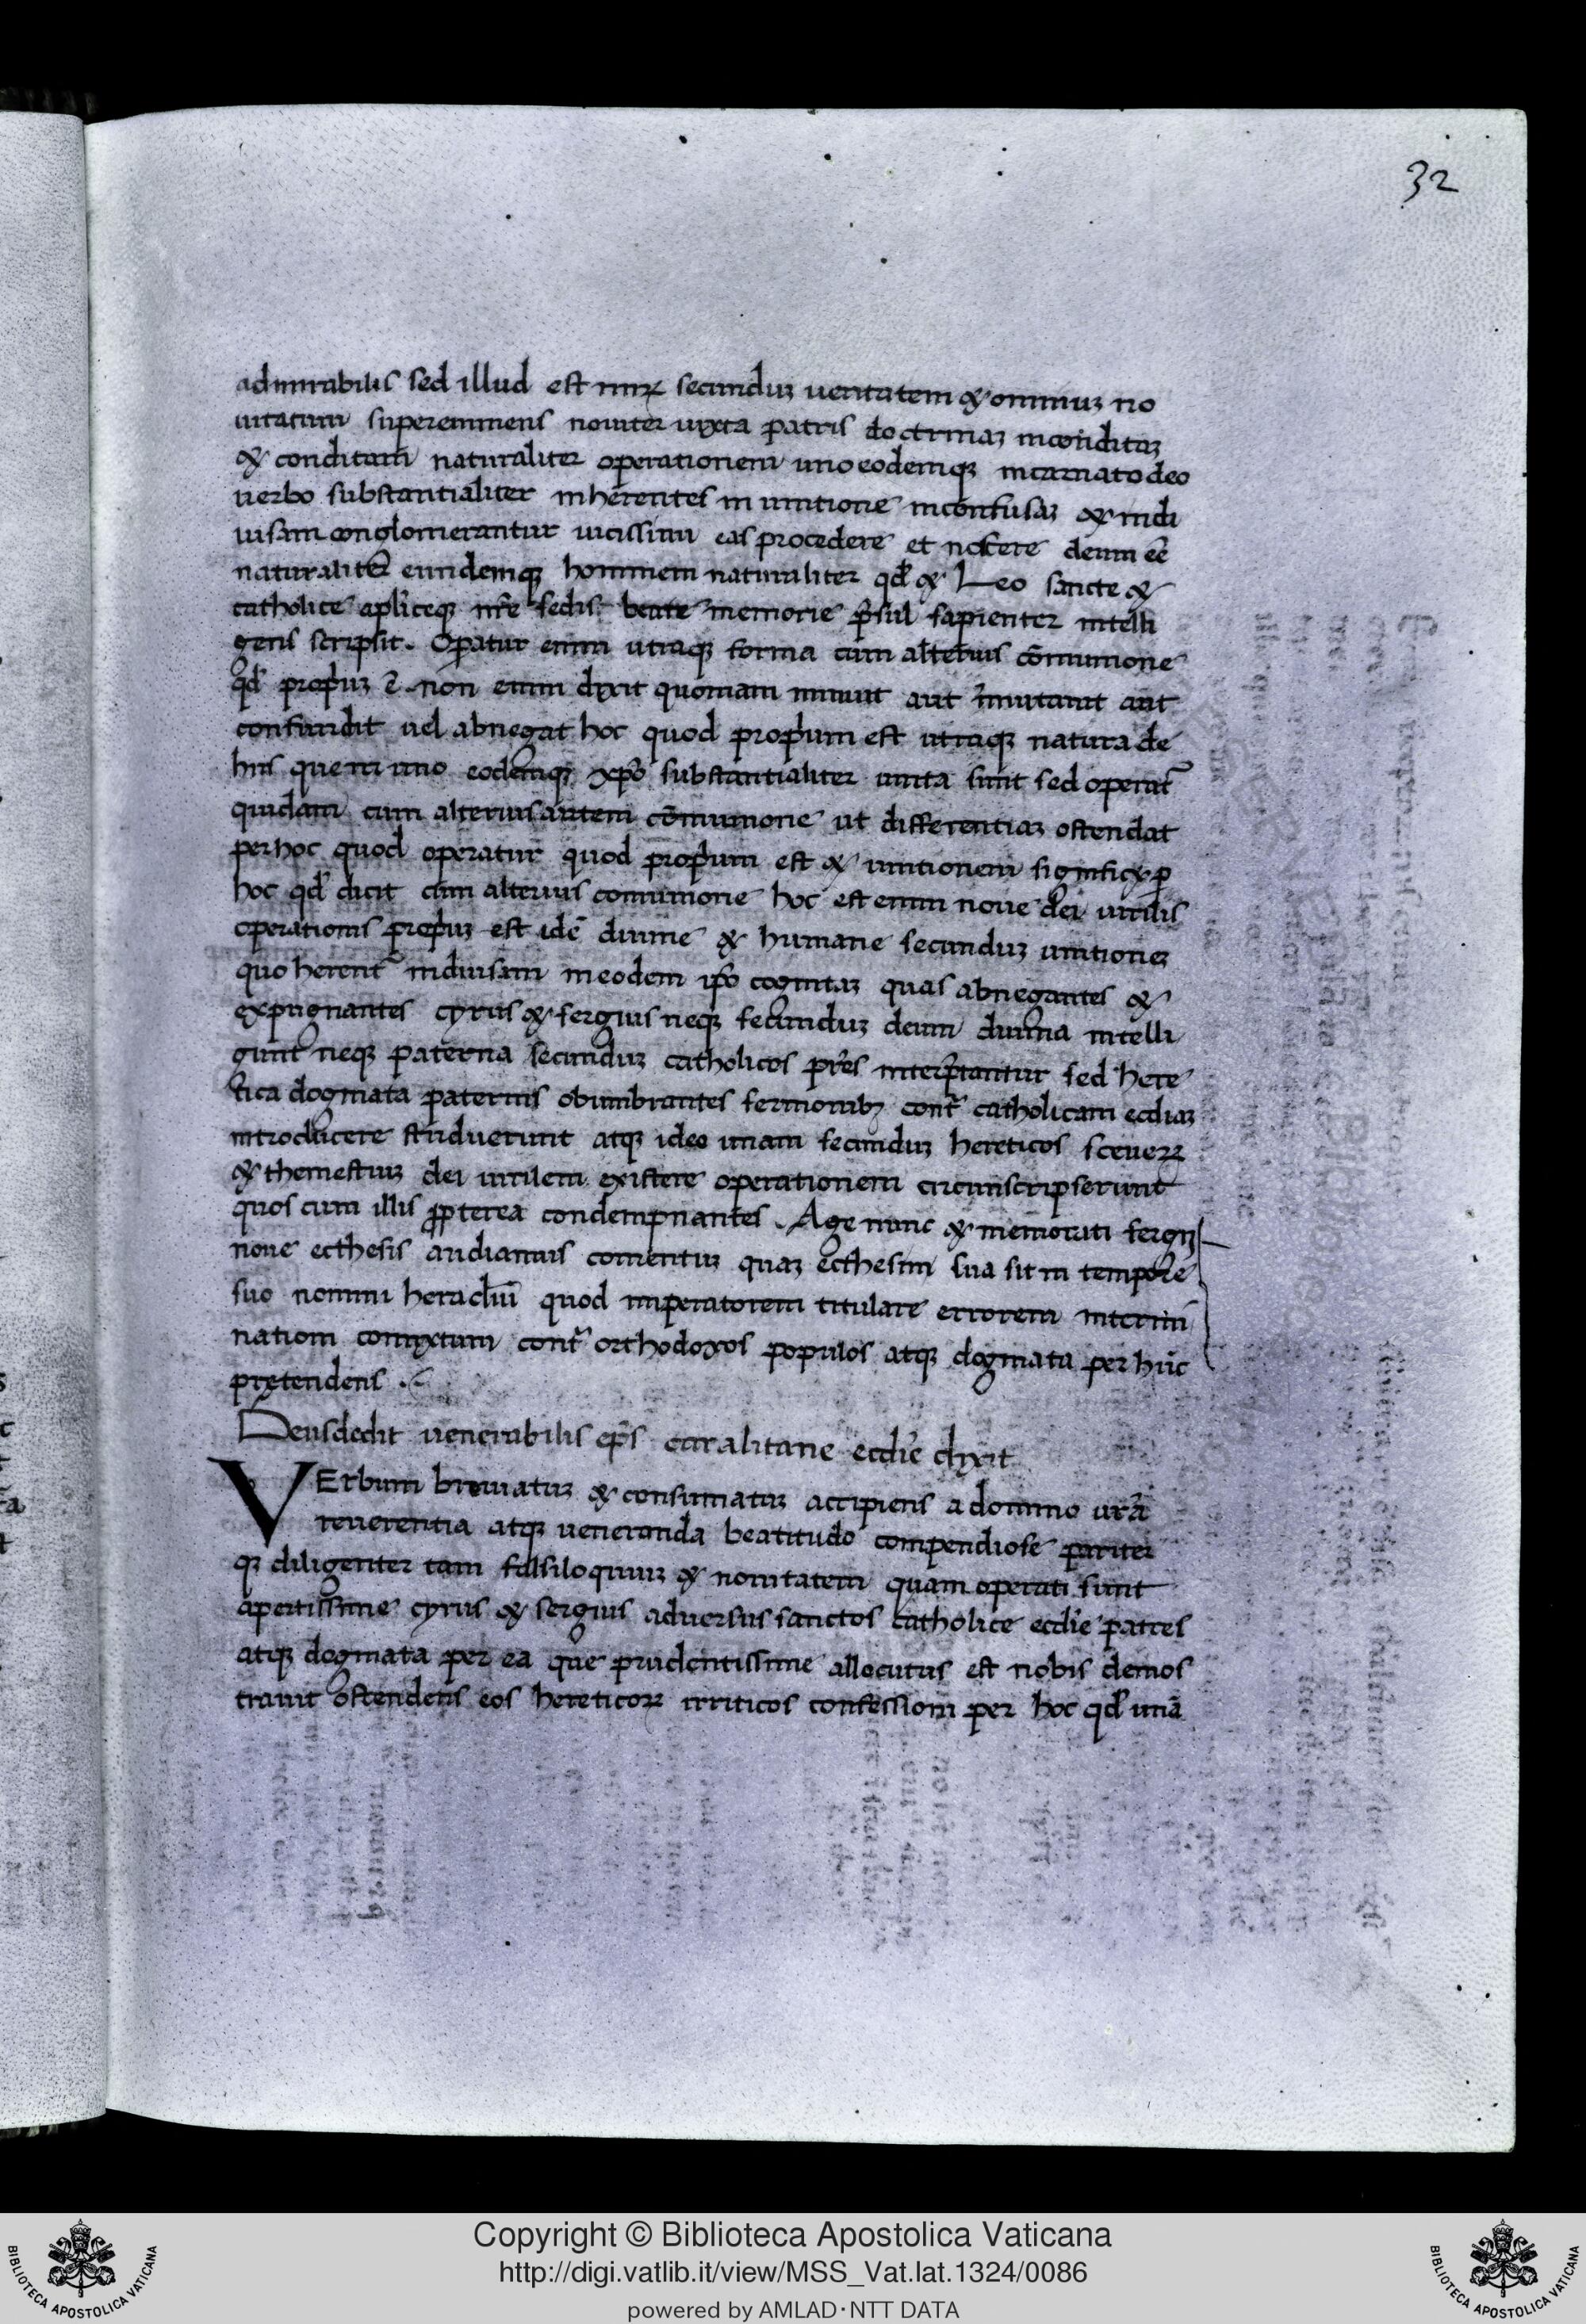 32
admirabilis sed illud est mirꝝ secunduꝫ ueritatem & omniuꝫ no
uitatum supereminens nouiter iuxta patris doctrinaꝫ inconditaꝫ
& conditam naturaliter operationem uno eodemqꝫ incarnato deo
uerbo substantialiter inherentes in unitione inconfusaꝫ & indi
uisam conglomerantur uicissim eas procedere et noscere deum eē
naturaliter eundemqꝫ hominem naturaliter qđ & Leo sancte &
catholice apliceqꝫ nr̄e sedis beate memorie p̄sul sapienter intelli
gens scripsit. Opatur enim utraqꝫ forma cum alterius cōmunione
qđ propriuꝫ ē. non enim dixit quoniam minuit aut īmutauit aut
confundit uel abnegat hoc quod proprium est utraqꝫ natura de
hiis que in uno eodemqꝫ xp̄o substantialiter unita sunt sed operat̄
quidam cum alterius autem cōmunione ut differentiaꝫ ostendat
per hoc quod operatur quod proprium est & unitionem significꝫ ꝑ
hoc qđ dicit cum alterius comunione hoc est enim noue dei uirilis
operationis propriuꝫ est idē diuine & humane secunduꝫ unitioneꝫ
quo herent̄ indiuisam in eodem ip̄o cognitaꝫ quas abnegantes &
expugnantes cyrus & sergius neqꝫ secunduꝫ deum diuina intelli
gunt neqꝫ paterna secunduꝫ catholicos pr̄es interp̄tantur sed here
tica dogmata paternis obumbrantes sermonibꝫ cont̄ catholicam eccl̄iaꝫ
introducere studuerunt atqꝫ ideo unam secunduꝫ hereticos sceuerꝝ
& themestiuꝫ dei uirilem existere operationem circumscripserunt
quos cum illis ꝓpterea condempnantes. Age nunc & memorati sergij
noue ecthesis audiamus comentuꝫ quaꝫ ecthesim sua sit in tempore
suo nomini heracliū quod imperatorem titulare errorem intermi
nationi comixtum cont̄ orthodoxos populos atqꝫ dogmata per hūc
pretendens.
Deusdedit uenerabilis ep̄s caralitane eccl̄ie dixit
VErbum breuiatuꝫ & consumatuꝫ accipiens a domino ur̄a
reuerentia atqꝫ ueneranda beatitudo compendiose pariter
qꝫ diligenter tam falsiloquiuꝫ & nouitatem quam operati sunt
apertissime cyrus & sergius aduersus sanctos catholice eccl̄ie patres
atqꝫ dogmata per ea que prudentissime allocutus est nobis demos
trauit ostendens eos hereticorꝝ irriticos confessioni per hoc qđ unā
Copyright © Biblioteca Apostolica Vaticana
http://digi.vatlib.it/view/MSS_Vat.lat.1324/0086
powered by AMLAD·NTT DATA
BIBLIOTECA APOSTOLICA VATICANA
BIBLIOTECA APOSTOLICA VATICANA